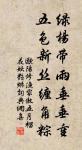 綠楊帶雨垂垂重
五色新絲纏角粽
歐陽修漁家傲五月榴
花妖艷烘詞典網集